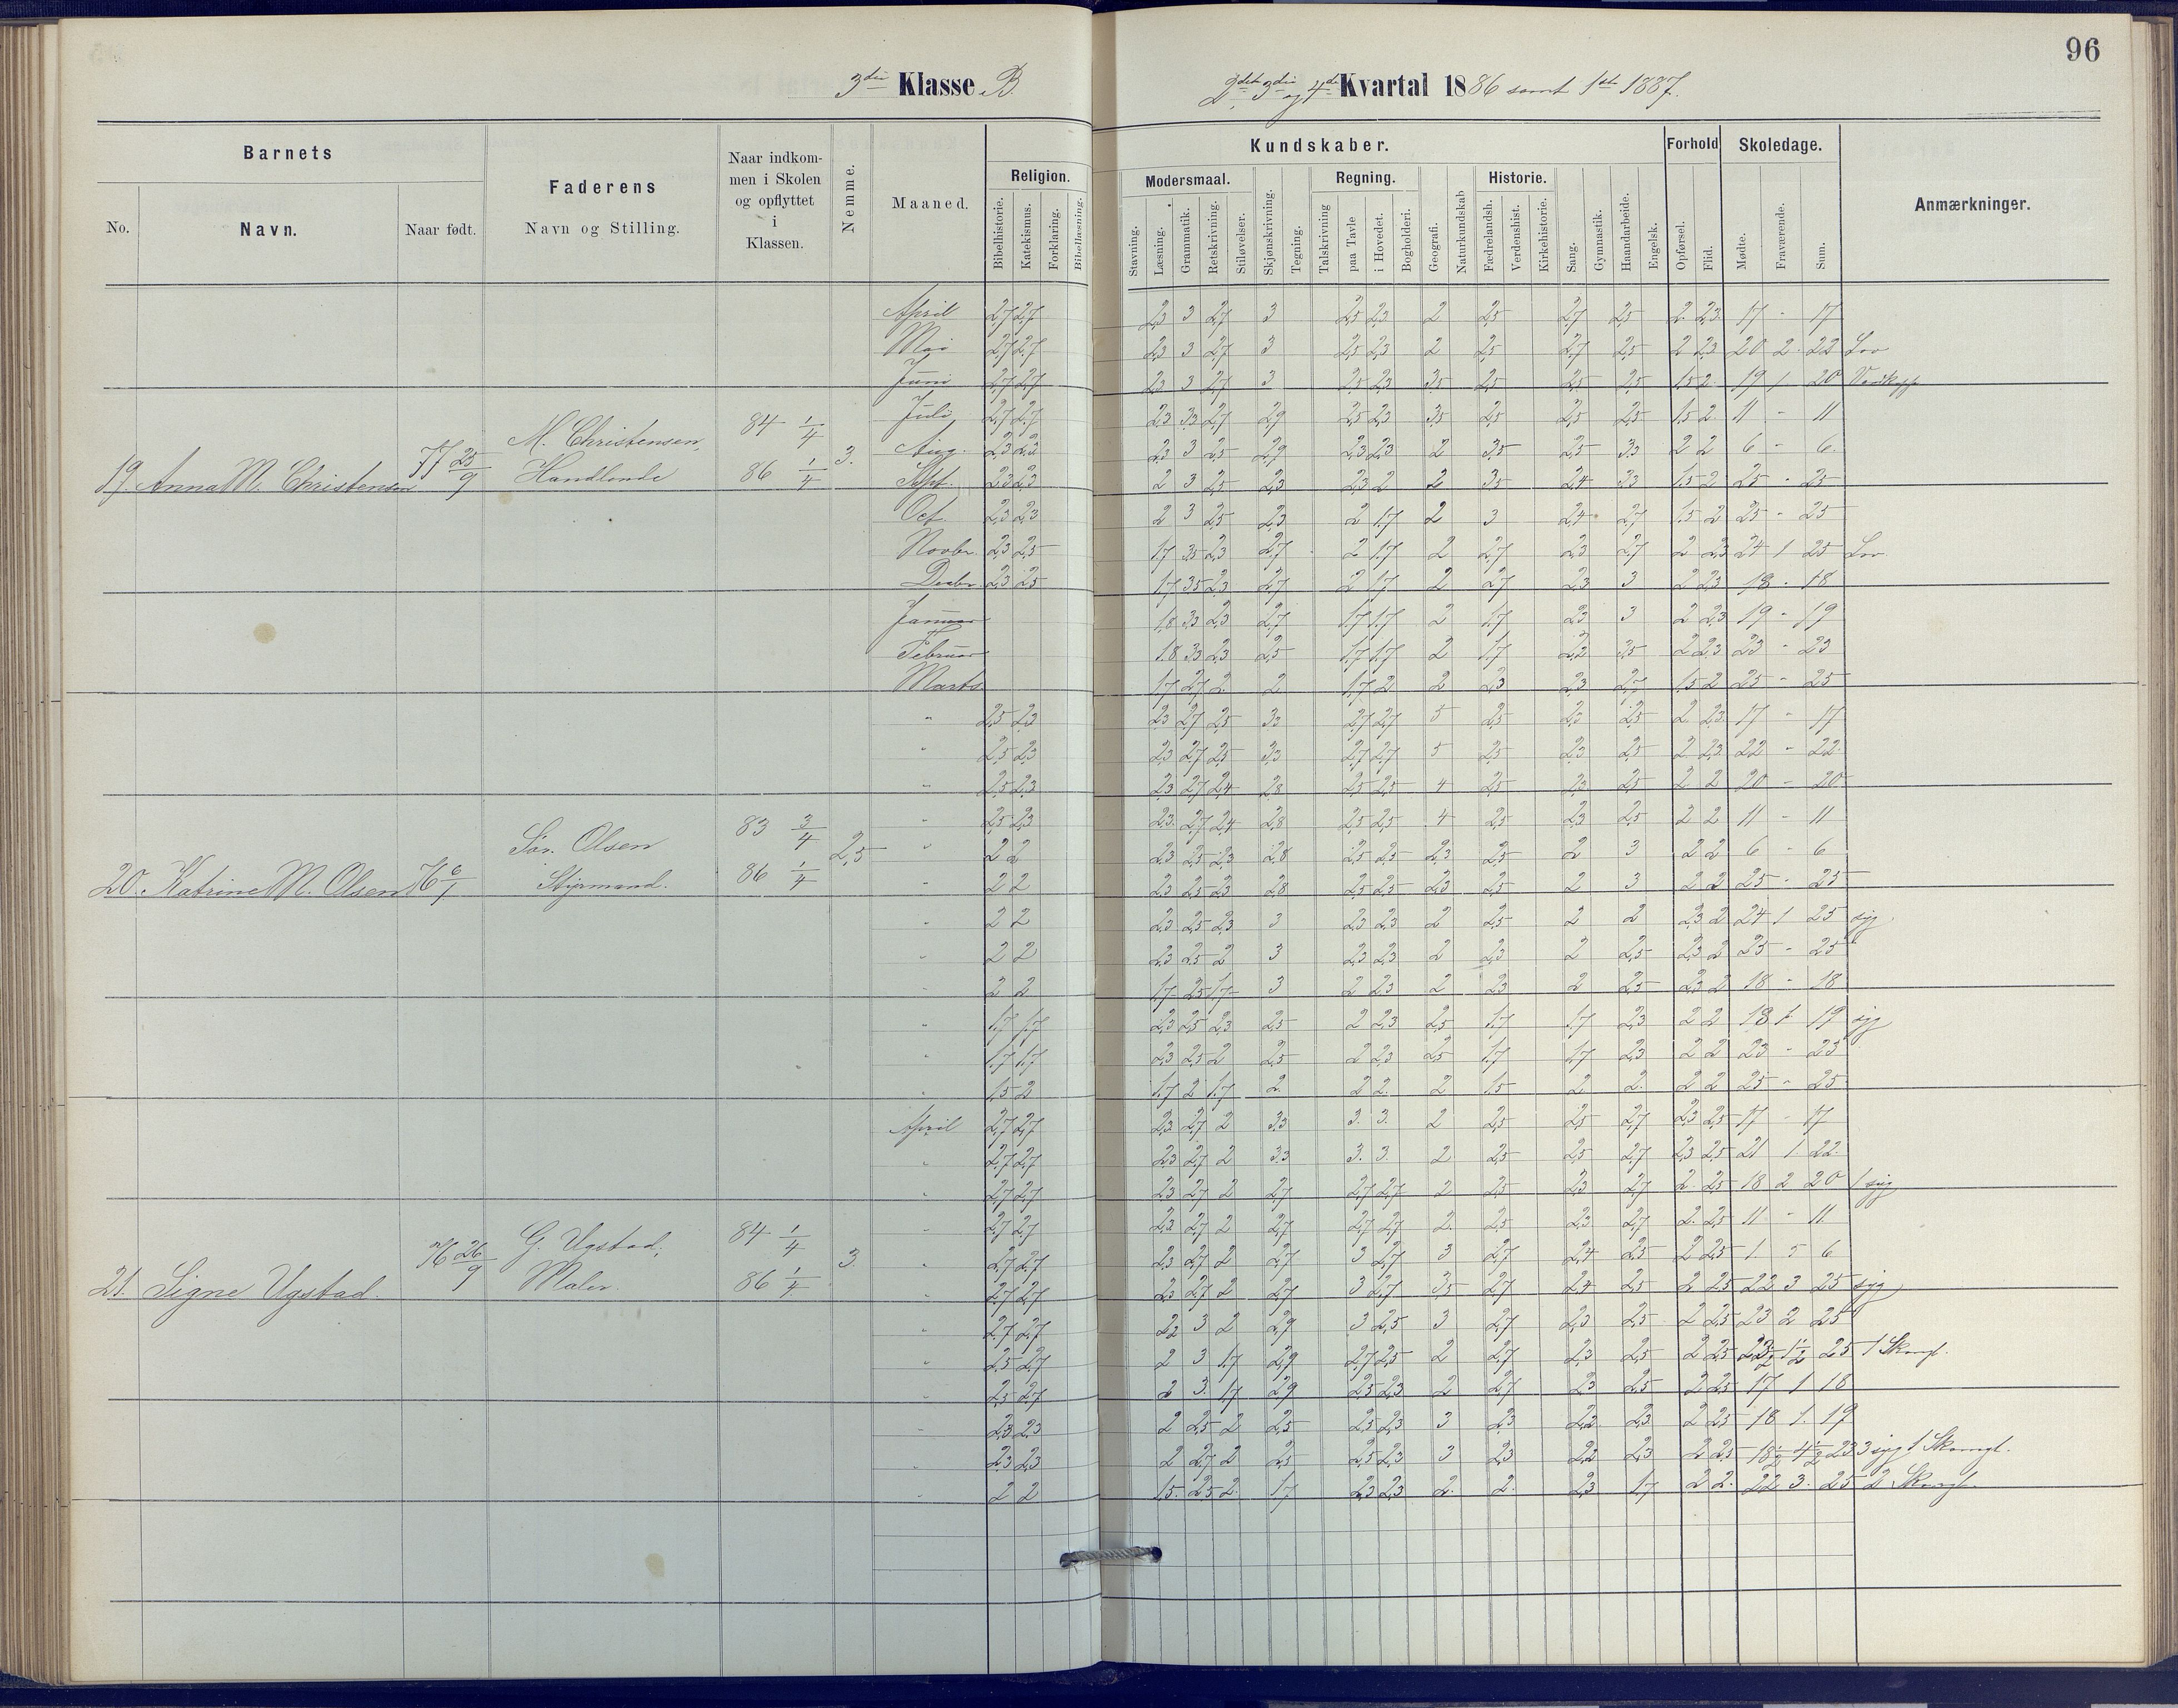 96
3die Klasse B.
2det 3die og 4de Kvartal 1886 samt 1ste 1887.
Barnets
Faderens
Naar indkommen i Skolen og opflyttet i Klassen.
Nemme.
Maaned.
Religion.
Kundskaber.
Forhold
Skoledage.
Anmærkninger.
Modersmaal.
Regning.
Historie.
No.
Navn.
Naar født.
Navn og Stilling.
Bibelhistorie.
Katekismus.
Forklaring.
Bibellæsning.
Stavning.
Læsning.
Grammatik.
Retskrivning.
Stiløvelser.
Skjønskrivning.
Tegning.
Talskrivning
paa Tavle
i Hovedet.
Bogholderi.
Geografi.
Naturkundskab
Fædrelandsh.
Verdenshist.
Kirkehistorie.
Sang.
Gymnastik.
Haandarbeide.
Engelsk.
Opførsel.
Flid.
Mødte.
Fraværende.
Sum.
April 2,7 2,7 2,3 3 2,7 3 2,5 2,3 2 2,5 2,7 2,5 2 2,3 17 - 17
Mai 2,7 2,7 2,3 3 2,7 3 2,5 2,3 2 2,5 2,7 2,5 2 2,3 20 2 22 Lov
Juni 2,7 2,7 2,3 3 2,7 3 2,5 2,3 3,5 2,5 2,5 2,5 1,5 2 19 1 20
Juli 2,7 2,7 2,3 3,3 2,7 2,9 2,5 2,3 3,5 2,5 2,5 2,5 1,5 2 11 - 11
19. Anna M. Christensen 77 25/9 M. Christensen, Handlende 84 1/4 86 1/4 3.
Aug. 2,3 2,3 2,3 3 2,5 2,9 2,3 2,3 2 3,5 2,5 3,3 2 2 6 - 6
Sept. 2,3 2,3 2 3 2,5 2,3 2,3 2 2 3,5 2,4 3,3 1,5 2 25 - 25
Oct. 2,3 2,3 2 3 2,5 2,3 2 1,7 2 3 2,4 2,7 1,5 2 25 - 25
Novbr. 2,3 2,5 1,7 3,5 2,3 2,7 2 1,7 2 2,7 2,3 2,7 2 2,3 24 1 25 Lov
Decbr. 2,3 2,5 1,7 3,5 2,3 2,7 2 1,7 2 2,7 2,3 3 2 2,3 18 - 18
Januar 1,8 3,3 2,3 2,7 1,7 1,7 2 1,7 2,3 3 2 2,3 19 - 19
Februar 1,8 3,3 2,3 2,5 1,7 1,7 2 1,7 2,2 3,5 2 2,3 23 - 23
Marts 1,7 2,7 2 2 1,7 2 2 2,3 2,3 2,7 1,5 2 25 - 25
" 2,5 2,3 2,3 2,7 2,5 3,3 2,7 2,7 5 2,5 2,3 2,5 2 2,3 17 - 17
" 2,5 2,3 2,3 2,7 2,5 3,3 2,7 2,7 5 2,5 2,3 2,5 2 2,3 22 - 22
" 2,5 2,3 2,3 2,7 2,4 2,8 2,5 2,5 4 2,5 2,3 2,5 2 2 20 - 20
" 2,5 2,3 2,3 2,7 2,4 2,8 2,5 2,5 4 2,5 2,3 2,5 2 2 11 - 11
20. Katrine M. Olsen 76 6/1 Sør. Olsen Styrmand. 83 3/4 86 1/4 2,5
" 2 2 2,3 2,5 2,3 2,8 2,5 2,5 2,3 2,5 2 3 2 2 6 - 6
" 2 2 2,3 2,5 2,3 2,8 2,5 2,5 2,3 2,5 2 3 2 2 25 - 25
" 2 2 2,3 2,5 2,3 3 2,3 2,3 2 2,5 2 2 2,3 2 24 1 25 syg.
" 2 2 2,3 2,5 2 3 2,3 2,3 2 2,3 2 2,5 2,3 2 25 - 25
" 2 2 1,7 2,5 1,7 3 2 2,3 2 2,3 2 2,5 2,3 2 18 - 18
" 1,7 1,7 2,3 2,5 2,3 2,5 2 2,3 2,5 1,7 1,7 2,3 2 2 18 1 19 syg
" 1,7 1,7 2,3 2,5 2 2,5 2 2,3 2,5 1,7 1,7 2,3 2 2 23 - 23
" 1,5 2 1,7 2 1,7 2 2 2 2 1,5 2 2 2 2 25 - 25
April 2,7 2,7 2,3 2,7 2 3,3 3 3 2 2,5 2,5 2,7 2,3 2,5 17 - 17
" 2,7 2,7 2,3 2,7 2 3,3 3 3 2 2,5 2,5 2,7 2,3 2,5 21 1 22
" 2,7 2,7 2,3 2,7 2 2,7 2,7 2,7 2 2,5 2,3 2,7 2 2,5 18 2 20 1 syg
" 2,7 2,7 2,3 2,7 2 2,7 2,7 2,7 2 2,5 2,3 2,7 2 2,5 11 - 11
21. Signe Ugstad. 76 26/9 G. Ugstad, Maler. 84 1/4 86 1/4 3.
" 2,7 2,7 2,3 2,7 2 2,7 3 2,7 3 2,7 2,4 2,5 2 2,5 1 5 6
" 2,7 2,7 2,3 2,7 2 2,7 3 2,7 3,5 2,7 2,4 2,5 2 2,5 22 3 25 syg
" 2,7 2,7 2,2 3 2 2,9 3 2,5 3 2,7 2,3 2,5 2 2,5 23 2 25
" 2,5 2,7 2 3 1,7 2,9 2,7 2,5 2 2,7 2,3 2,5 2 2,5 23 1/2 1 1/2 25 1 Skomgl.
" 2,5 2,7 2 3 1,7 2,9 2,5 2,3 2 2,7 2,3 2,5 2 2,5 17 1 18
" 2,3 2,3 2 2,5 2 2,5 2,5 2,3 3 2,3 2,2 2,3 2 2,5 18 1 19
" 2,3 2,3 2 2,7 2 2,5 2,5 2,3 3 2,3 2,2 2,3 2 2,5 18 1/2 4 1/2 23 3 syg 1 Skomgl.
" 2 2 1,5 2,5 2 1,7 2,3 2,3 2 2 2,3 1,7 2 2 22 3 25 2 Skomgl.